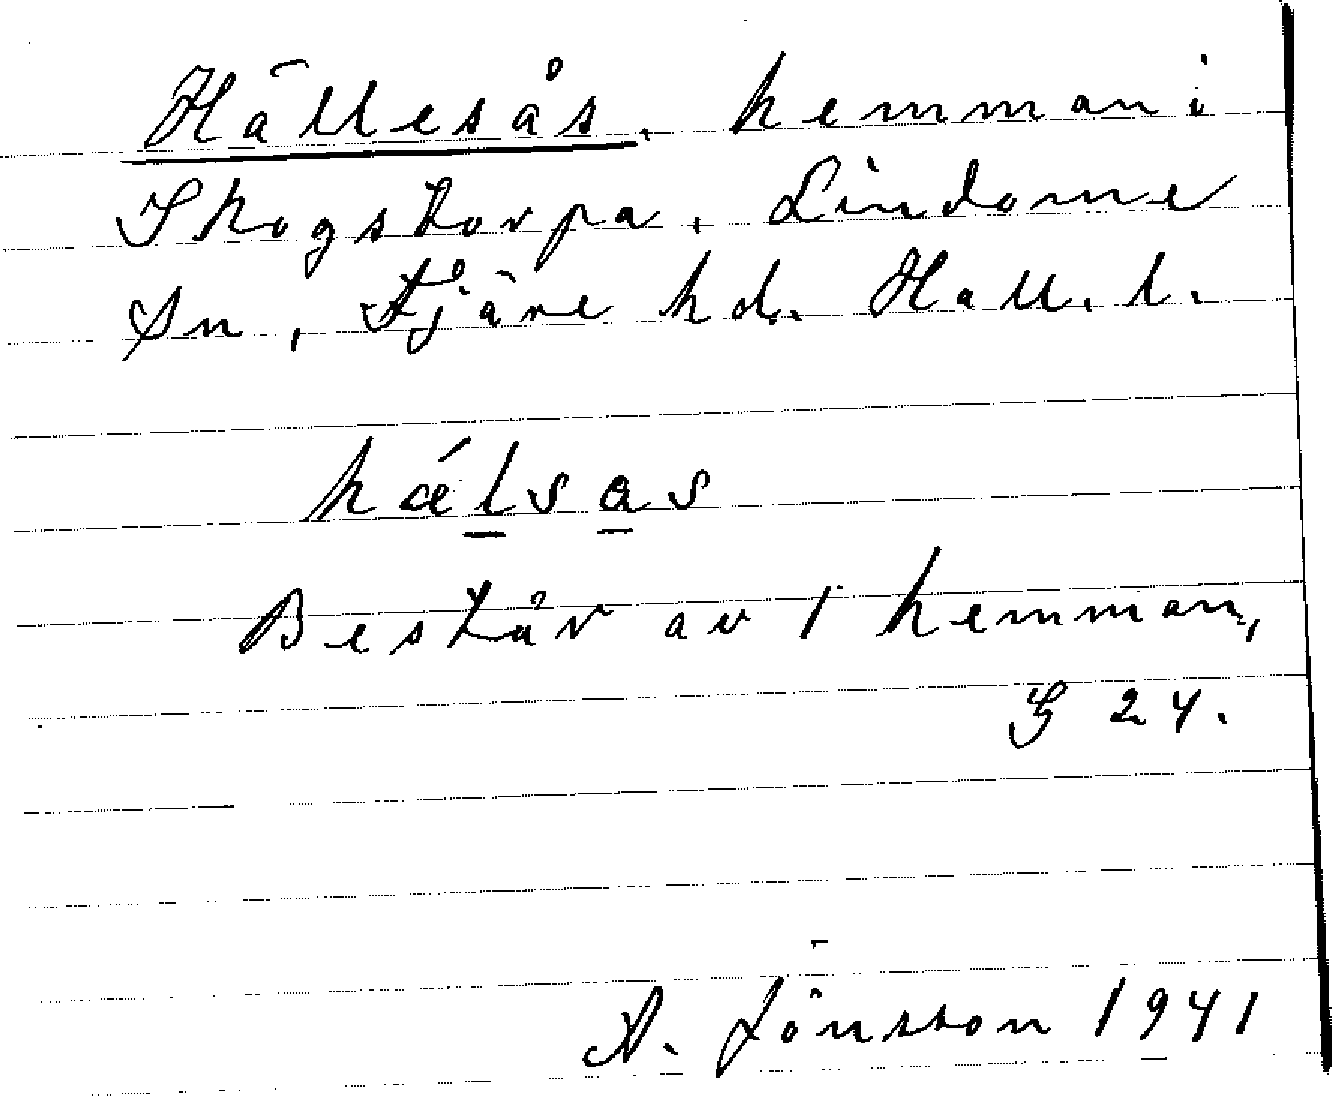 Hällesås. hemman i
Skogstorpa, Lindome
Sn, Fjäre hd. Hall. l.
hǽlsas
Består av 1 hemman,
G 24.
A. Jönsson 1941